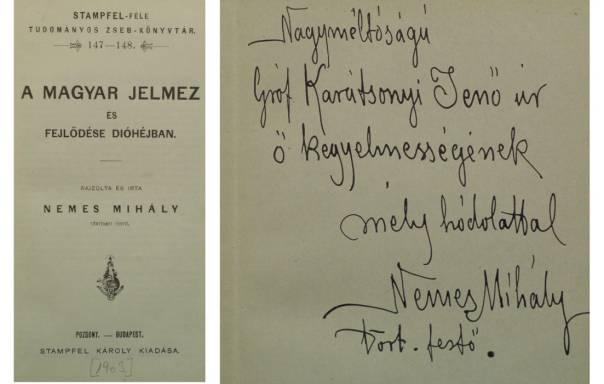 STAMPFEL-FÉLE
TUDOMÁNYOS ZSEB-KÖNYVTÁR.
147—148.
A MAGYAR JELMEZ
ÉS
FEJLŐDÉSE DIÓHÉJBAN.
RAJZOLTA ÉS IRTA
NEMES MIHÁLY
POZSONY. — BUDAPEST.
STAMPFEL KÁROLY KIADÁSA.
[1903]
Nagyméltóságú
Gróf Karátsonyi Jenő úr
ő kegyelmességének
mély hódolattal
Nemes Mihály
tört. festő.